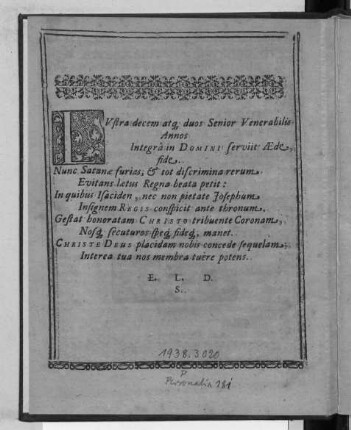 LUstra decem atq; duos Senior Venerabilis
Annos
Integrâ in DOMINI serviit Æde,
fide.
Nunc Satanæ furias, & tot discrimina rerum
Evitans lætus Regna beata petit:
In quibus Isaciden, nec non pietate Josephum
Insignem REGIS conspicit ante thronum.
Gestat honoratam CHRISTO tribuente Coronam,
Nosq; secuturos speq; fideq; manet.
CHRISTE DEUS placidam nobis concede sequelam,
Interea tua nos membra tuêre potens.
E. L. D.
S.
1938.3020
P
Personalia 181